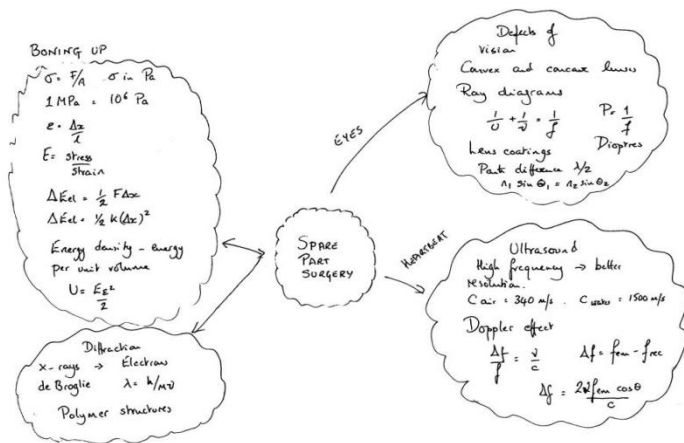 BONING UP
σ = F/A σ in Pa
1 MPa = 10⁶ Pa
ε = Δx/l
E = stress/strain
ΔEel = ½ FΔx
ΔEel = ½ k(Δx)²
Energy density – energy
per unit volume
U = Eε²/2
Diffraction
x-rays → Electrons
de Broglie λ = h/mv
Polymer structures
SPARE
PART
SURGERY
EYES
Defects of
vision
Convex and concave lenses
Ray diagrams
1/u + 1/v = 1/f P = 1/f
Dioptres
Lens coatings
Path difference λ/2
n₁ sin θ₁ = n₂ sin θ₂
HEARTBEAT
Ultrasound
High frequency → better
resolution.
C air = 340 m/s . C water = 1500 m/s
Doppler effect
Δf/f = v/c Δf = fem - frec
Δf = 2vfem cosθ/c